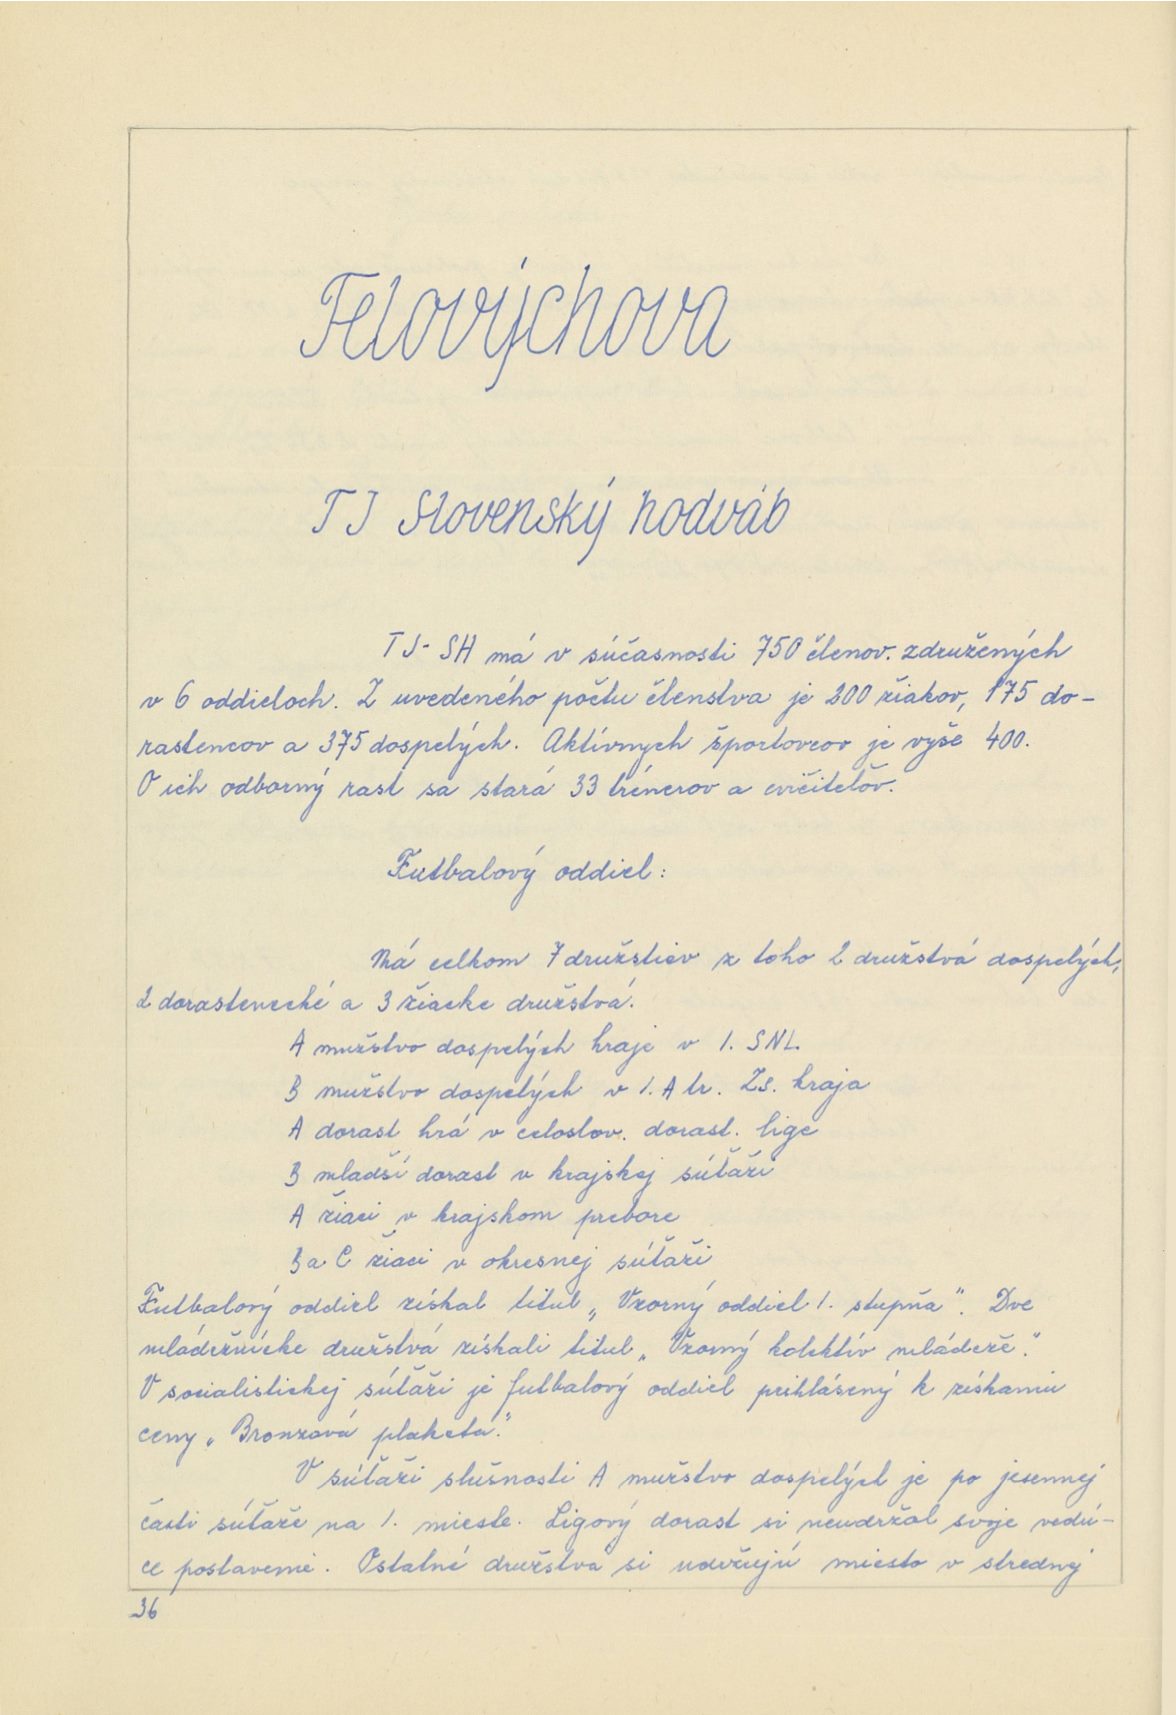 Telovýchova
TJ Slovenský hodváb
TJ- SH má v súčasnosti 750 členov. združených
v 6 oddieloch. Z uvedeného počtu členstva je 200 žiakov, 175 do-
rastencov a 375 dospelých. Aktívnych športovcov je vyše 400.
O ich odborný rast sa stará 33 trénerov a cvičiteľov.
Futbalový oddiel:
Má celkom 7 družstiev z toho 2 družstvá dospelých,
2 dorastenecké a 3 žiacke družstvá.
A mužstvo dospelých hraje v 1. SNL.
B mužstvo dospelých v 1. A tr. Zs. kraja
A dorast hrá v celoslov. dorast. lige
B mladší dorast v krajskej súťaži
A žiaci v krajskom prebore
B a C žiaci v okresnej súťaži
Futbalový oddiel získal titul „Vzorný oddiel 1. stupňa". Dve
mládežnícke družstvá získali titul „Vzorný kolektív mládeže".
V socialistickej súťaži je futbalový oddiel prihlásený k získaniu
ceny „Bronzová plaketa".
V súťaži slušnosti A mužstvo dospelých je po jesennej
časti súťaže na 1. mieste. Ligový dorast si neudržal svoje vedú-
ce postavenie. Ostatné družstvá si udržujú miesto v strednej
36